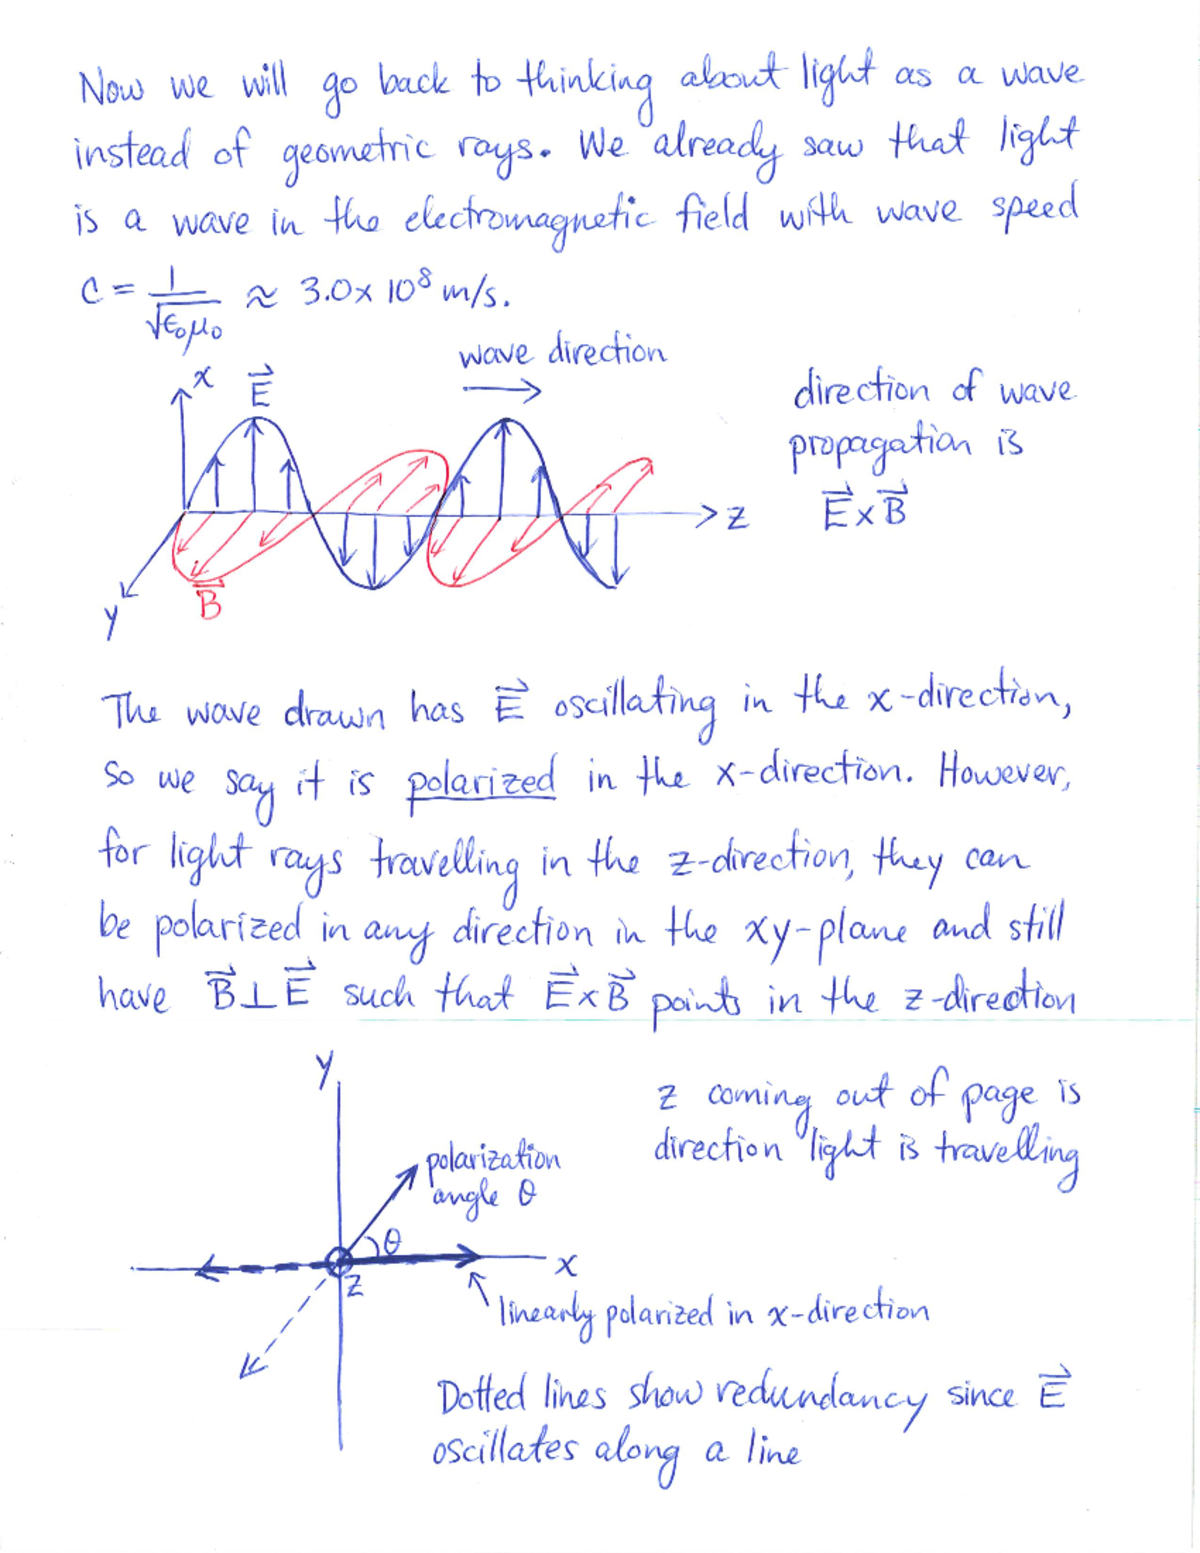 Now we will go back to thinking about light as a wave
instead of geometric rays. We already saw that light
is a wave in the electromagnetic field with wave speed
c = 1/√ε₀μ₀ ≈ 3.0x 10⁸ m/s.
wave direction
x E⃗
direction of wave
propagation is
E⃗xB⃗
z
B⃗
y
The wave drawn has E⃗ oscillating in the x-direction,
so we say it is polarized in the x-direction. However,
for light rays travelling in the z-direction, they can
be polarized in any direction in the xy-plane and still
have B⃗⊥E⃗ such that E⃗xB⃗ points in the z-direction
y
z coming out of page is
direction light is travelling
polarization
angle θ
θ
x
z
linearly polarized in x-direction
Dotted lines show redundancy since E⃗
oscillates along a line